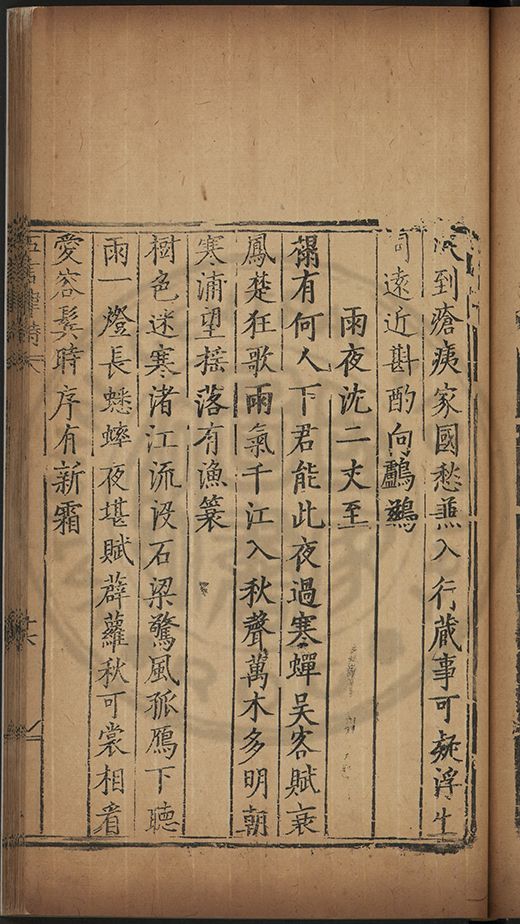 到瘡痍家國愁無入行蔵事可疑浮生
遠近斟酌向鸕鷀
雨夜沈二丈至
榻有何人下君能此夜過寒蟬吴客賦衰
鳳楚狂歌雨氣千江入秋聲萬木多明朝
寒浦望揺落有漁簑
樹色迷寒渚江流没石梁驚風孤鴈下聴
雨一燈長蟋蟀夜堪賦薜蘿秋可裳相看
愛客髩時序有新霜
五言律詩